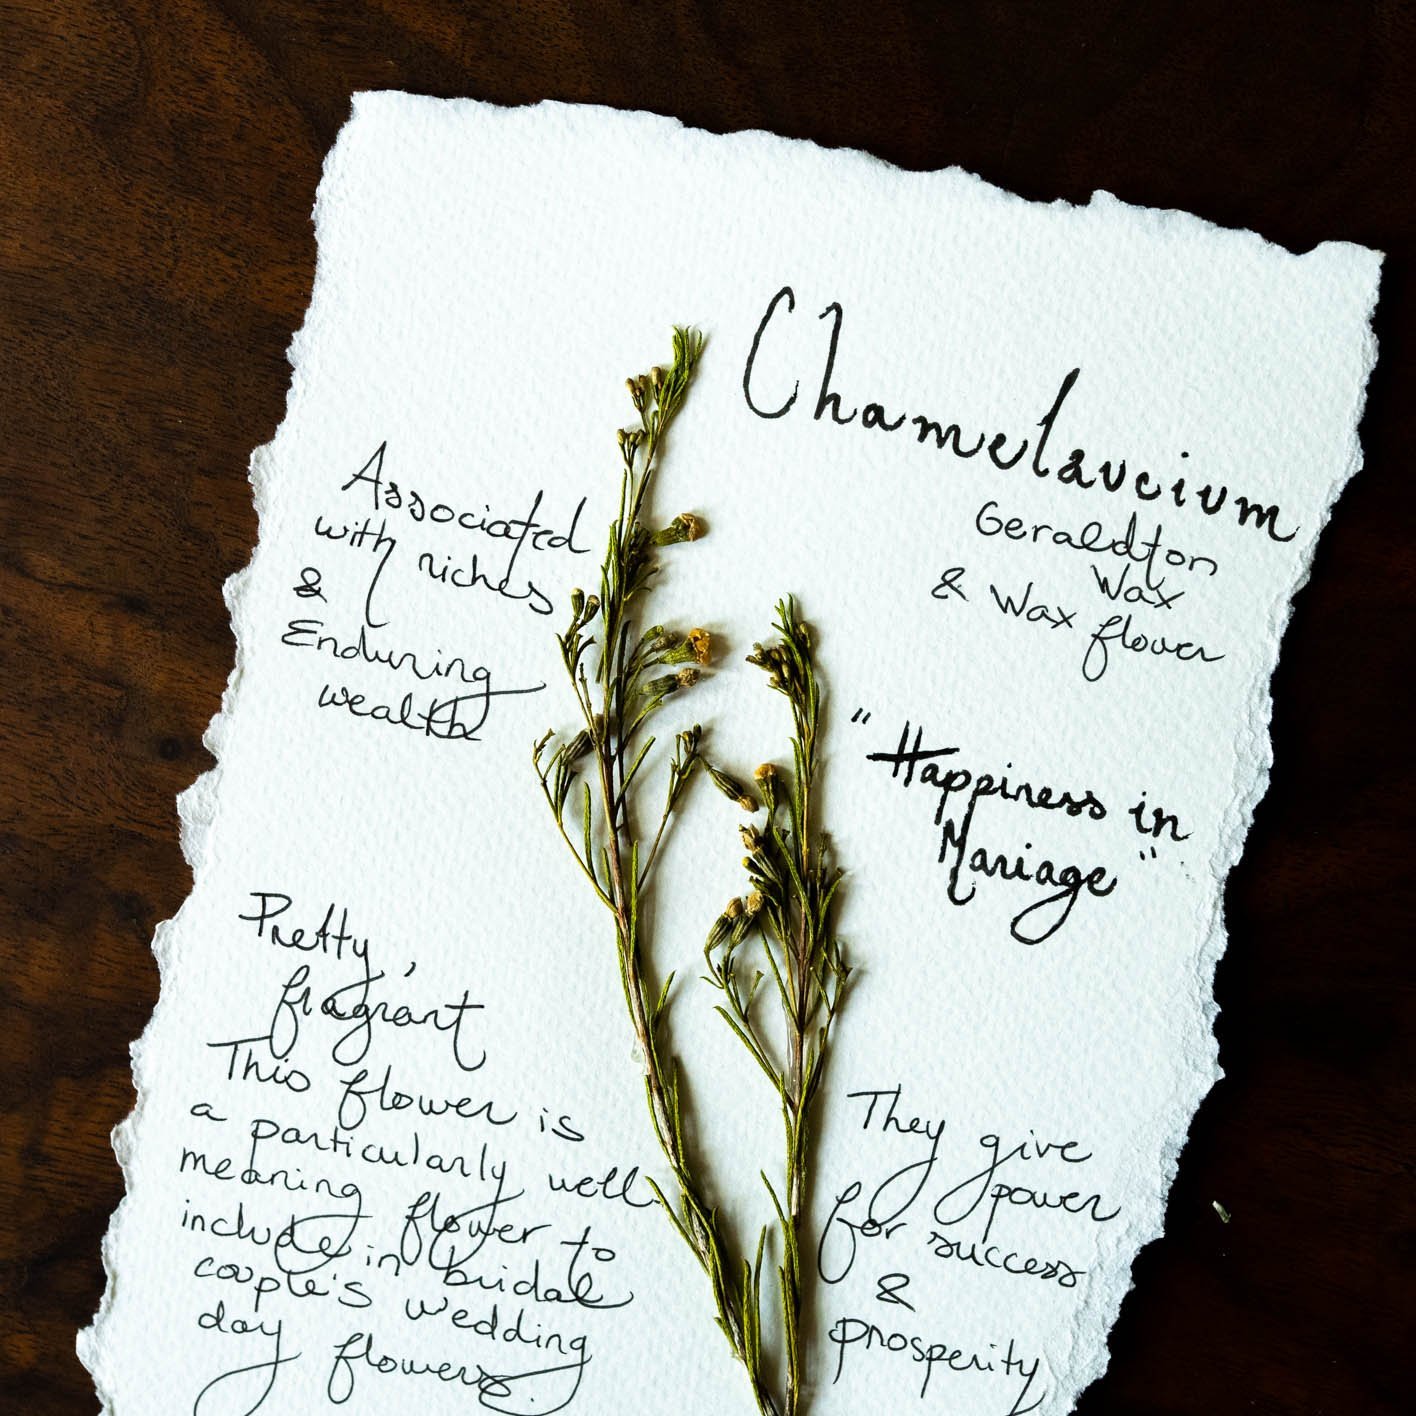 Chamelaucium
Geraldton
Wax
& Wax flower
Associated
with riches
&
Enduring
wealth
"Happiness in
Mariage"
Pretty,
fragrant
This flower is
a particularly well-
meaning flower to
include in bridal
couple's wedding
day flowers.
They give
power
for success
&
prosperity